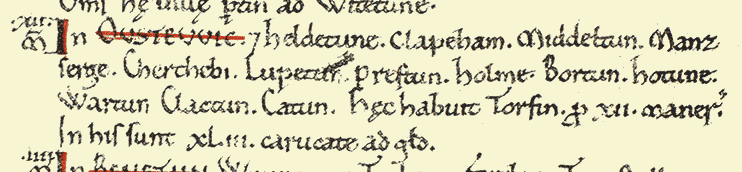 ad Witetune.
xii.
M In OUSTEUUIC. ⁊ heldetune. Clapeham. Middeltun. Manz
serge. Cherchebi. Lupetun. Prestun. holme. Bortun. hotune.
Wartun Clactun. Catun. hęc habuit Torfin. ꝓ xii. maner̃.
In his sunt xl.iii. carucate ad głd.
iiii.
M In BENETAIN